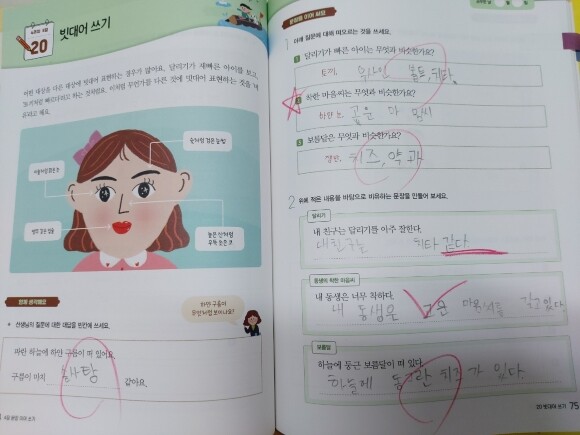 20
빗대어 쓰기
어떤 대상을 다른 대상에 빗대어 표현하는 경우가 많아요. 달리기가 재빠른 아이를 보고,
숯처럼 검은 눈썹
앵두 같은 입술
높은 산처럼
우뚝 솟은 코
함께 생각해요
하얀 구름이
무엇처럼 보이나요?
선생님의 질문에 대한 대답을 빈칸에 쓰세요.
파란 하늘에 하얀 구름이 떠 있어요.
구름이 마치 솜사탕 같아요.
문장을 이어 써요
1 아래 질문에 대해 떠오르는 것을 쓰세요.
1 달리기가 빠른 아이는 무엇과 비슷한가요?
토끼,
2 착한 마음씨는 무엇과 비슷한가요?
하얀 눈, 고운 마음씨
3 보름달은 무엇과 비슷한가요?
쟁반, 치즈, 약과
2 위에 적은 내용을 바탕으로 비유하는 문장을 만들어 보세요.
달리기
내 친구는 달리기를 아주 잘한다.
내 친구는 치타 같다.
동생의 착한 마음씨
내 동생은 너무 착하다.
내 동생은 고운 마음씨를 갖고 있다.
보름달
하늘에 둥근 보름달이 떠 있다.
하늘에 동그란 치즈가 있다.
20 빗대어 쓰기 75